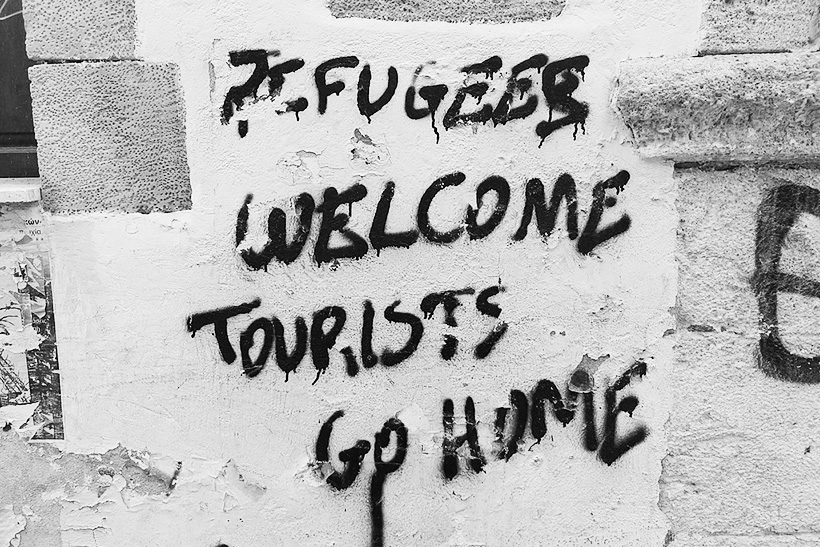 REFUGEES
WELCOME
TOURISTS
GO HOME